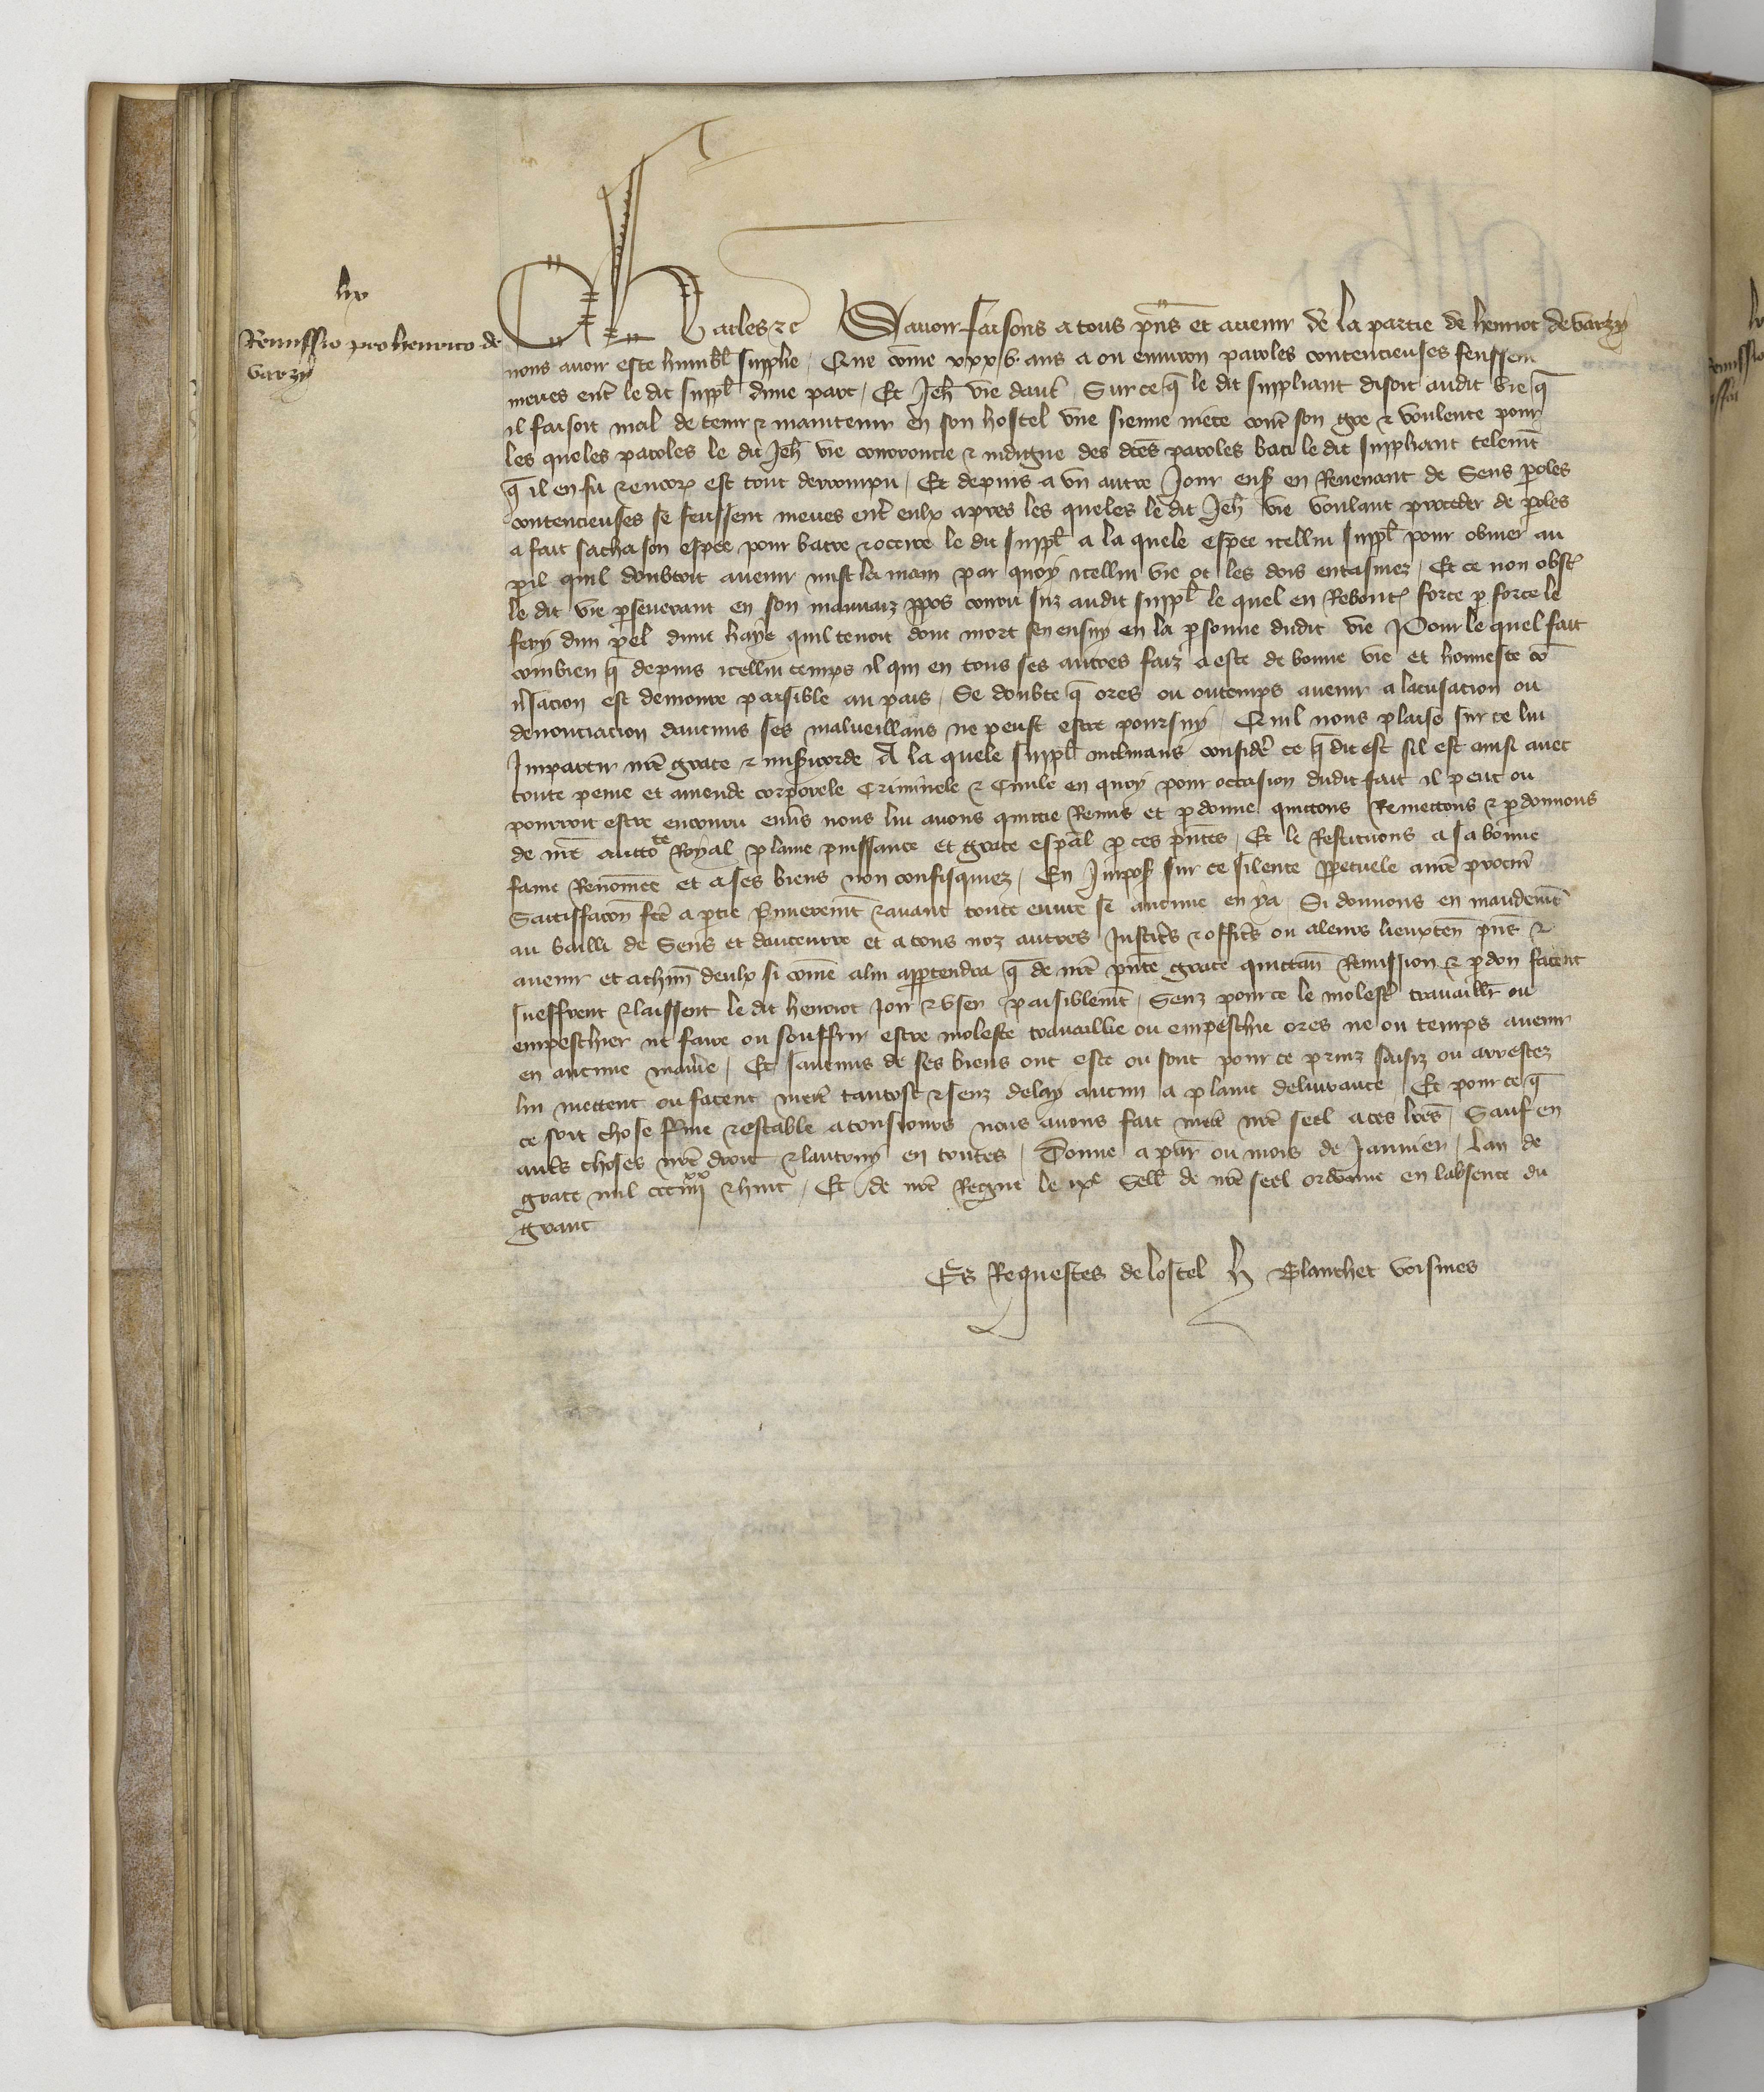 lix
Remissio pro henrico de
varzy
Charles etc Savoir faisons a tous pñs et avenir de la partie de henriot de varzy
nous avoir este humblt supplie, Que cõme xxxv ans a ou environ paroles contencieuses feussent
meues entr̃ le dit suppl̃ dune part, Et Jeh̃ vie daut̃, Sur ce q̃ le dit suppliant disoit audit vie q̃
il faisoit mal de tenir & maintenir en son hostel une sienne niece cont̃ son gre & voulente pour
les queles paroles le dit Jeh̃ vie courroucie & indigne des dc̃es paroles bati le dit suppliant telem̃t
q̃ il en fu & encor est tout derrompu, Et depuis a un autre Jour ens̃ en Revenant de Sens p̃oles
contencieuses se feussent meues entr̃ eulx apres les queles le dit Jeh̃ vie voulant proceder de p̃oles
a fait sacha son espee pour batre & occirre le dit suppl̃ a la quele espee icellui suppl̃ pour obvier au
p̃il quil doubtoit avenir mist la main par quoy icellui vie ot les dois entamez, Et ce non obst̃
le dit vie p̃severant en son mauvaiz p̃pos couru suz audit suppl̃ le quel en Rebout̃ force p̃ force le
fery dun pel dune haye quil tenoit dont mort sen ensuy en la p̃sonne dudit vie Pour le quel fait
combien q̃ depuis icellui temps il qui en tous ses autres faiz a este de bonne vie et honneste cõ
v̾sacion est demoure paisible au pais, Se doubte q̃ ores ou ou temps avenir a lacusacion ou
denonciacion daucuns ses malveillãns ne peust estre poursuy, Quil nous plaise sur ce lui
Impartir nr̃e grace & mis̃icorde, A la quele suppl̃ inclinans consider̃ ce q̃ dit est sil est ainsi avec
toute peine et amende corporele Criminele & Civile en quoy pour occasion dudit fait il peut ou
pourroit estre encouru env̾s nous lui avons quittie Remis et p̃donne quittons Remettons & p̃donnons
de nr̃e auctote Royal plaine puissance et grace esp̃al p̃ ces p̃ñtes, Et le Restituons a sa bonne
fame Renom̃ee et a ses biens non confisquiez, En Impos̃ sur ce silence p̃petuele a nr̃e procur̃
Satisfac̃on fc̃e a p̃tie p̃mierem̃t & avant toute euvre se aucune en y a, Si donnons en mandem̃t
au bailli de Sens et dauceurre et a tous noz autres Justic̃rs & offic̃rs ou a leurs lieuxten̄ p̃ñs &
avenir et a ch̄un̄ deulx si cõme a lui app̃tendra q̃ de nr̃e p̃ñte grace quittan̄ Remission & p̃don facent
sueffrent & laissent le dit henriot Joir & user paisiblem̃t, Senz pour ce le molest̃ travaill̃r ou
empeschier ne faire ou souffrir estre moleste travaillie ou empeschie ores ne ou temps avenir
en aucune manie̾, Et saucuns de ses biens ont este ou sont pour ce prinz saisiz ou arrestez
lui mettent ou facent mett̃ tantost & senz delay aucun a plaine delivrance, Et pour ce q̃
ce soit chose f̃me & estable a tousiours nous avons fait mett̃ nr̃e seel a ces lr̃es, Sauf en
aut̃s choses nr̃e droit & lautruy en toutes, Donne a par̃ ou mois de Janvier, Lan de
grace mil ccc iiijxx & huit, Et de nr̃e Regne le ixe Seell̃ de nr̃e seel ordonne en labsence du
grant
Es Requestes de lostel h Blanchet voisines